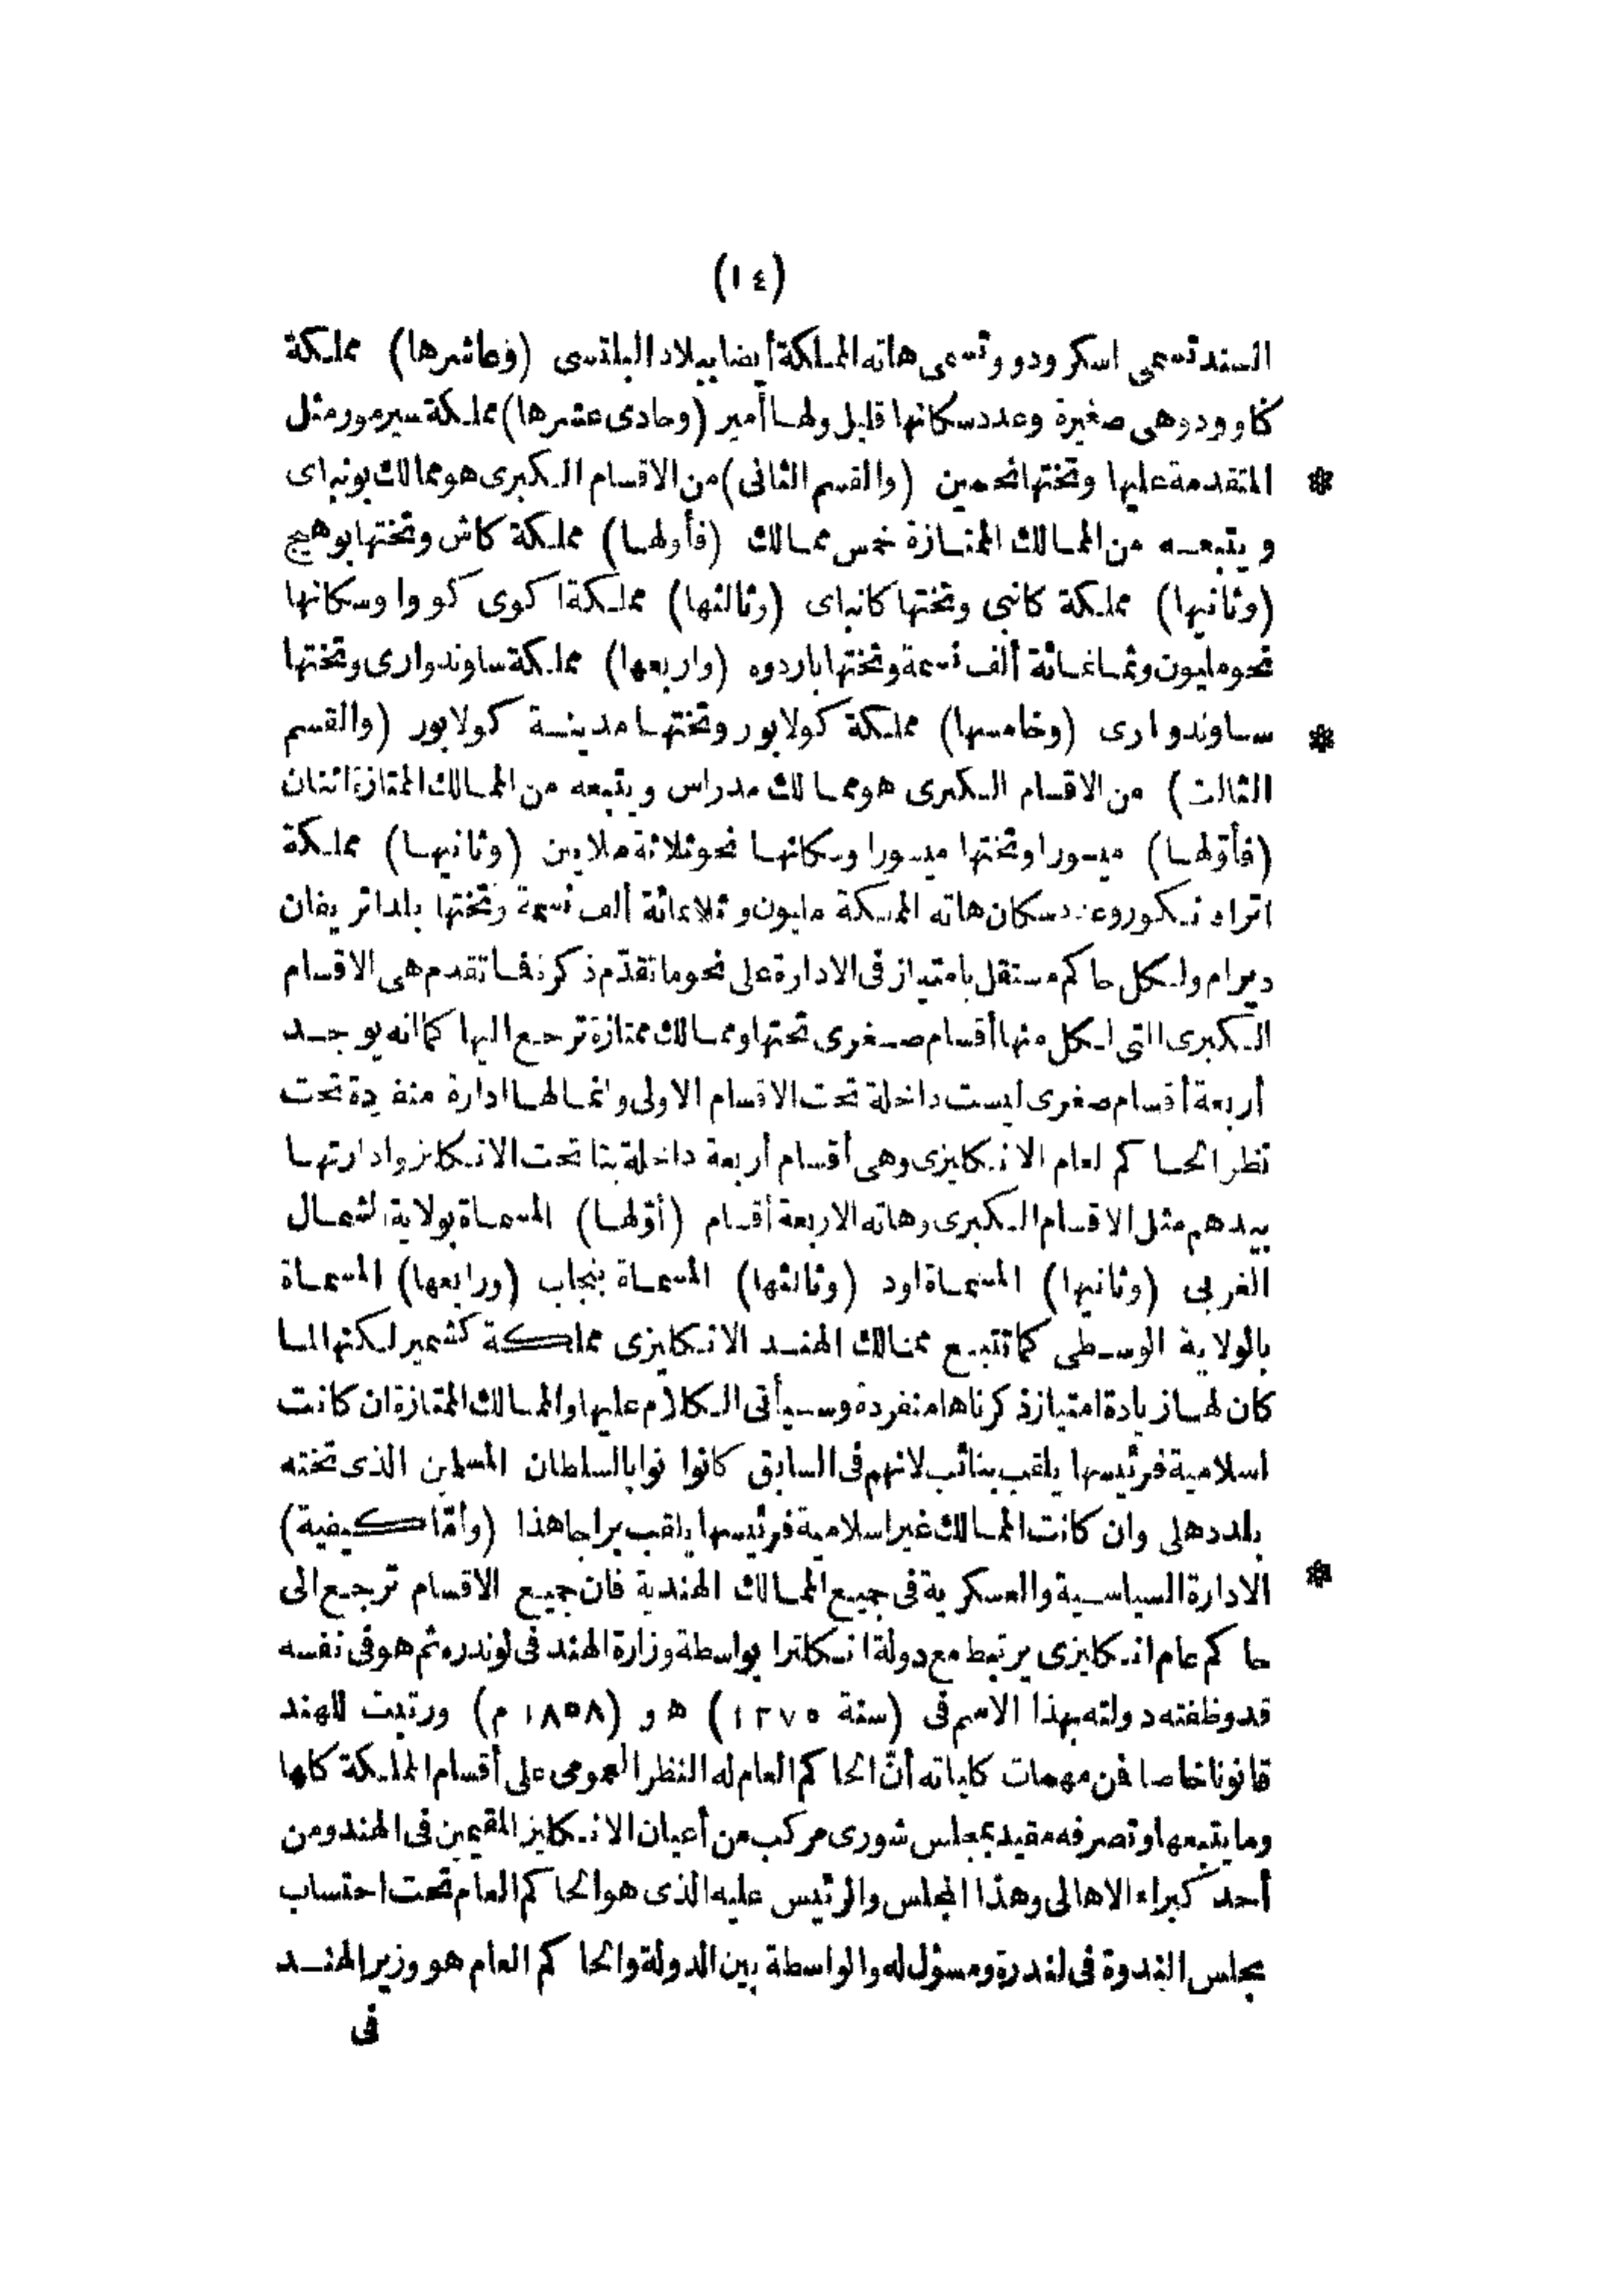 (١٤)
السند تسمى اسكرودو وتسمى هاته المملكة أيضا ببلاد البلتسى (وعاشرها) مملكة
كاوودوهى صغيرة وعدد سكانها قليل ولها أمير (وحادى عشرها) مملكة سيرمورمثل
* المتقدمة عليها وتختها نحمين (والقسم الثانى) من الاقسام الكبرى هو ممالك بونباى
ويتبعه من الممالك الممتازة خمس ممالك (فأولها) مملكة كاش وتختها بوهيج
(وثانيها) مملكة كانبى وتختها كانباى (وثالثها) مملكة اكوى كووا وسكانها
نحو مليون وثمانمائة ألف نسمة وتختها باردوه (واربعها) مملكة ساوندوارى وتختها
* ساوندوارى (وخامسها) مملكة كولابور وتختها مدينة كولابور (والقسم
الثالث) من الاقسام الكبرى هو ممالك مدراس ويتبعه من الممالك الممتازة اثنان
(فأوّلها) ميسورا وتختها ميسورا وسكانها نحو ثلاثة ملايين (وثانيها) مملكة
اتراونكور وعدد سكان هاته المملكة مليون وثلاثمائة ألف نسمة وتختها بلد اتريفان
ديرام ولكل حاكم مستقل بامتياز فى الادارة على نحو ما تقدّم ذكره فما تقدم هى الاقسام
الكبرى التى لكل منها أقسام صغرى تحتها وممالك ممتازة ترجع اليها كما انه يوجد
أربعة أقسام صغرى ليست داخلة تحت الاقسام الاولى وانما لها ادارة منفردة تحت
نظر الحاكم لعام الانكليزى وهى أقسام أربعة داخلة بتا تحت الانكليز وادارتها
بيدهم مثل الاقسام الكبرى وهاته الاربعة أقسام (أوّلها) المسماة بولاية الشمال
الغربى (وثانيها) المسماة اود (وثالثها) المسماة بنجاب (ورابعها) المسماة
بالولاية الوسطى كما تتبع ممالك الهند الانكليزى مملكة كشمير لكنها لما
كان لها زيادة امتياز ذكرناها منفردة وسيأتى الكلام عليها والممالك الممتازة ان كانت
اسلامية فرئيسها يلقب بنائب لانهم فى السابق كانوا نوابا لسلطان المسلمين الذى تخته
بلد دهلى وان كانت الممالك غير اسلامية فرئيسها يلقب براجا هذا (وأمّا كيفية)
* الادارة السياسية والعسكرية فى جميع الممالك الهندية فان جميع الاقسام ترجع الى
حاكم عام انكليزى يرتبط مع دولة انكلترا بواسطة وزارة الهند فى لوندره ثم هو فى نفسه
قد وظفته دولته بهذا الاسم فى (سنة ١٢٧٥) ه و (١٨٥٨ م) ورتبت للهند
قانونا خاصا فمن مهمات كلياته أنّ الحاكم العام له النظر العمومى على أقسام المملكة كلها
وما يتبعها وتصرفه مقيد بمجلس شورى مركب من أعيان الانكليز المقيمين فى الهند ومن
أحد كبراء الاهالى وهذا المجلس والرئيس عليه الذى هو الحاكم العام تحت احتساب
مجلس الندوة فى لندرة ومسؤل له والواسطة بين الدولة والحاكم العام هو وزير الهند
فى